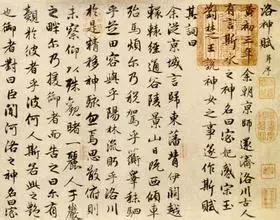 洛賦 并序
黃初三年余朝京師還濟洛川古人
有言斯水之神名曰宓妃感宋玉
對楚王說神女之事遂作斯賦
其詞曰
余從京域言歸東藩背伊闕越
轘轅經通谷陵景山日既西傾車
殆馬煩爾乃稅駕乎蘅皋秣駟
乎芝田容與乎陽林流眄乎洛川
於是精移神駭忽焉思散俯則
未察仰以殊觀睹一麗人于巖
之畔爾乃援御者而告之曰爾有
覿於彼者乎彼何人斯若此之艷
也御者對曰臣聞河洛之神名曰宓